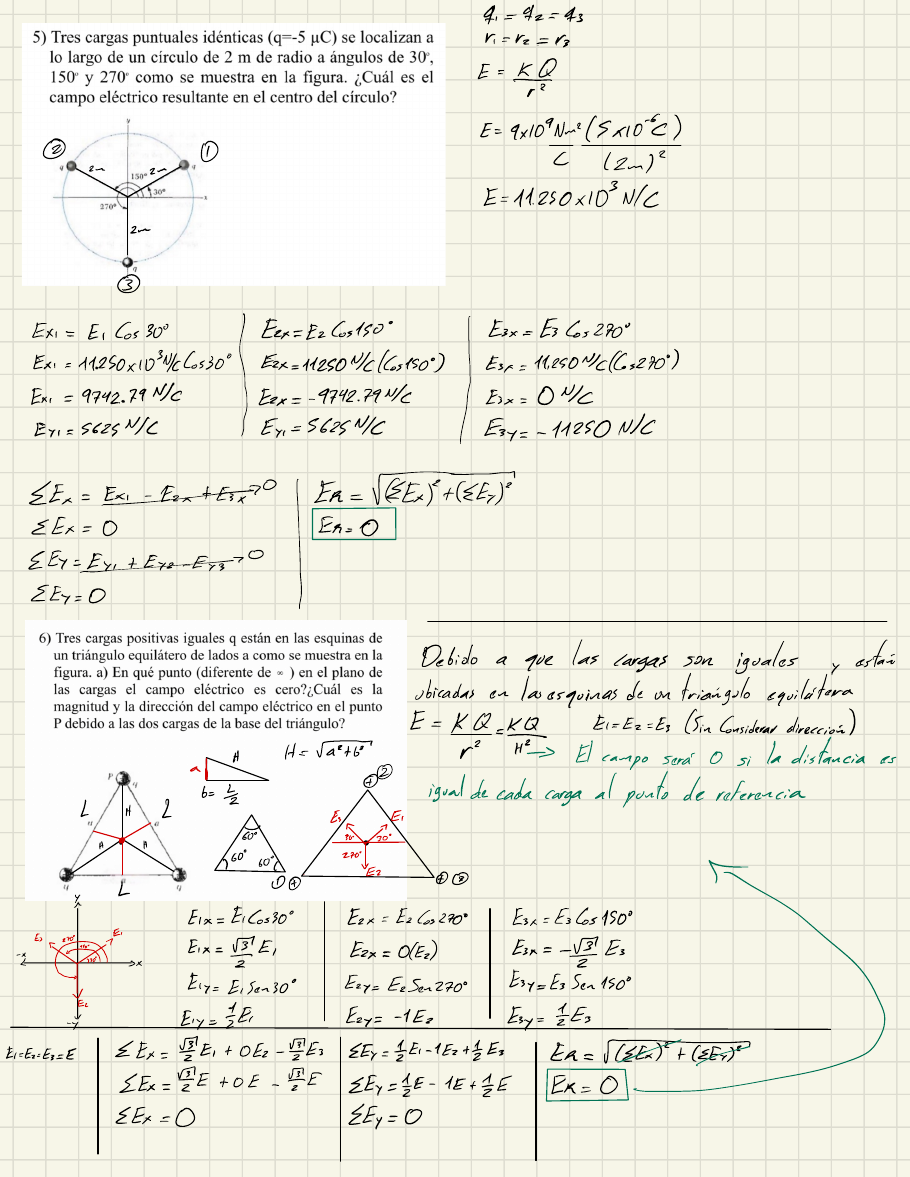 5) Tres cargas puntuales idénticas (q=-5 μC) se localizan a
lo largo de un círculo de 2 m de radio a ángulos de 30º,
150º y 270º como se muestra en la figura. ¿Cuál es el
campo eléctrico resultante en el centro del círculo?
q₁ = q₂ = q₃
r₁ = r₂ = r₃
E = KQ/r²
E = 9x10⁹ Nm²/C (5x10⁻⁶C)/(2m)²
E = 11.250x10³ N/C
y
② ①
q 2m 2m q
150º 30º x
270º
2m
q
③
Ex₁ = E₁ Cos 30º
Ex₁ = 11.250x10³ N/C Cos 30º
Ex₁ = 9742.79 N/C
Ey₁ = 5625 N/C
E₂x = E₂ Cos 150º
E₂x = 11250 N/C (Cos 150º)
E₂x = -9742.79 N/C
Ey₁ = 5625 N/C
E₃x = E₃ Cos 270º
E₃x = 11.250 N/C (Cos 270º)
E₃x = 0 N/C
E₃y = -11250 N/C
ΣEx = Ex₁ - E₂x + E₃x → 0
ΣEx = 0
ΣEy = Ey₁ + Ey₂ - Ey₃ → 0
ΣEy = 0
ER = √(ΣEx)² + (ΣEy)²
ER = 0
6) Tres cargas positivas iguales q están en las esquinas de
un triángulo equilátero de lados a como se muestra en la
figura. a) En qué punto (diferente de ∞ ) en el plano de
las cargas el campo eléctrico es cero?¿Cuál es la
magnitud y la dirección del campo eléctrico en el punto
P debido a las dos cargas de la base del triángulo?
Debido a que las cargas son iguales y están
ubicadas en las esquinas de un triángulo equilátera
E = KQ/r² = KQ/H² E₁=E₂=E₃ (Sin Considerar dirección)
→ El campo será 0 si la distancia es
igual de cada carga al punto de referencia
a H H = √a²+b²
b = L/2
P q
L L
a H a
H H
q L q
60º
60º 60º
+ ②
E₃ E₁
270º
E₂
① + + ③
y
E₃ 270º E₁
-x x
E₂
-y
E₁x = E₁ Cos 30º
E₁x = √3/2 E₁
E₁y = E₁ Sen 30º
E₁y = 1/2 E₁
E₂x = E₂ Cos 270º
E₂x = 0(E₂)
E₂y = E₂ Sen 270º
E₂y = -1E₂
E₃x = E₃ Cos 150º
E₃x = -√3/2 E₃
E₃y = E₃ Sen 150º
E₃y = 1/2 E₃
E₁=E₂=E₃=E
ΣEx = √3/2 E₁ + 0E₂ - √3/2 E₃
ΣEx = √3/2 E + 0E - √3/2 E
ΣEx = 0
ΣEy = 1/2 E₁ - 1E₂ + 1/2 E₃
ΣEy = 1/2 E - 1E + 1/2 E
ΣEy = 0
ER = √(ΣEx)² + (ΣEy)²
ER = 0